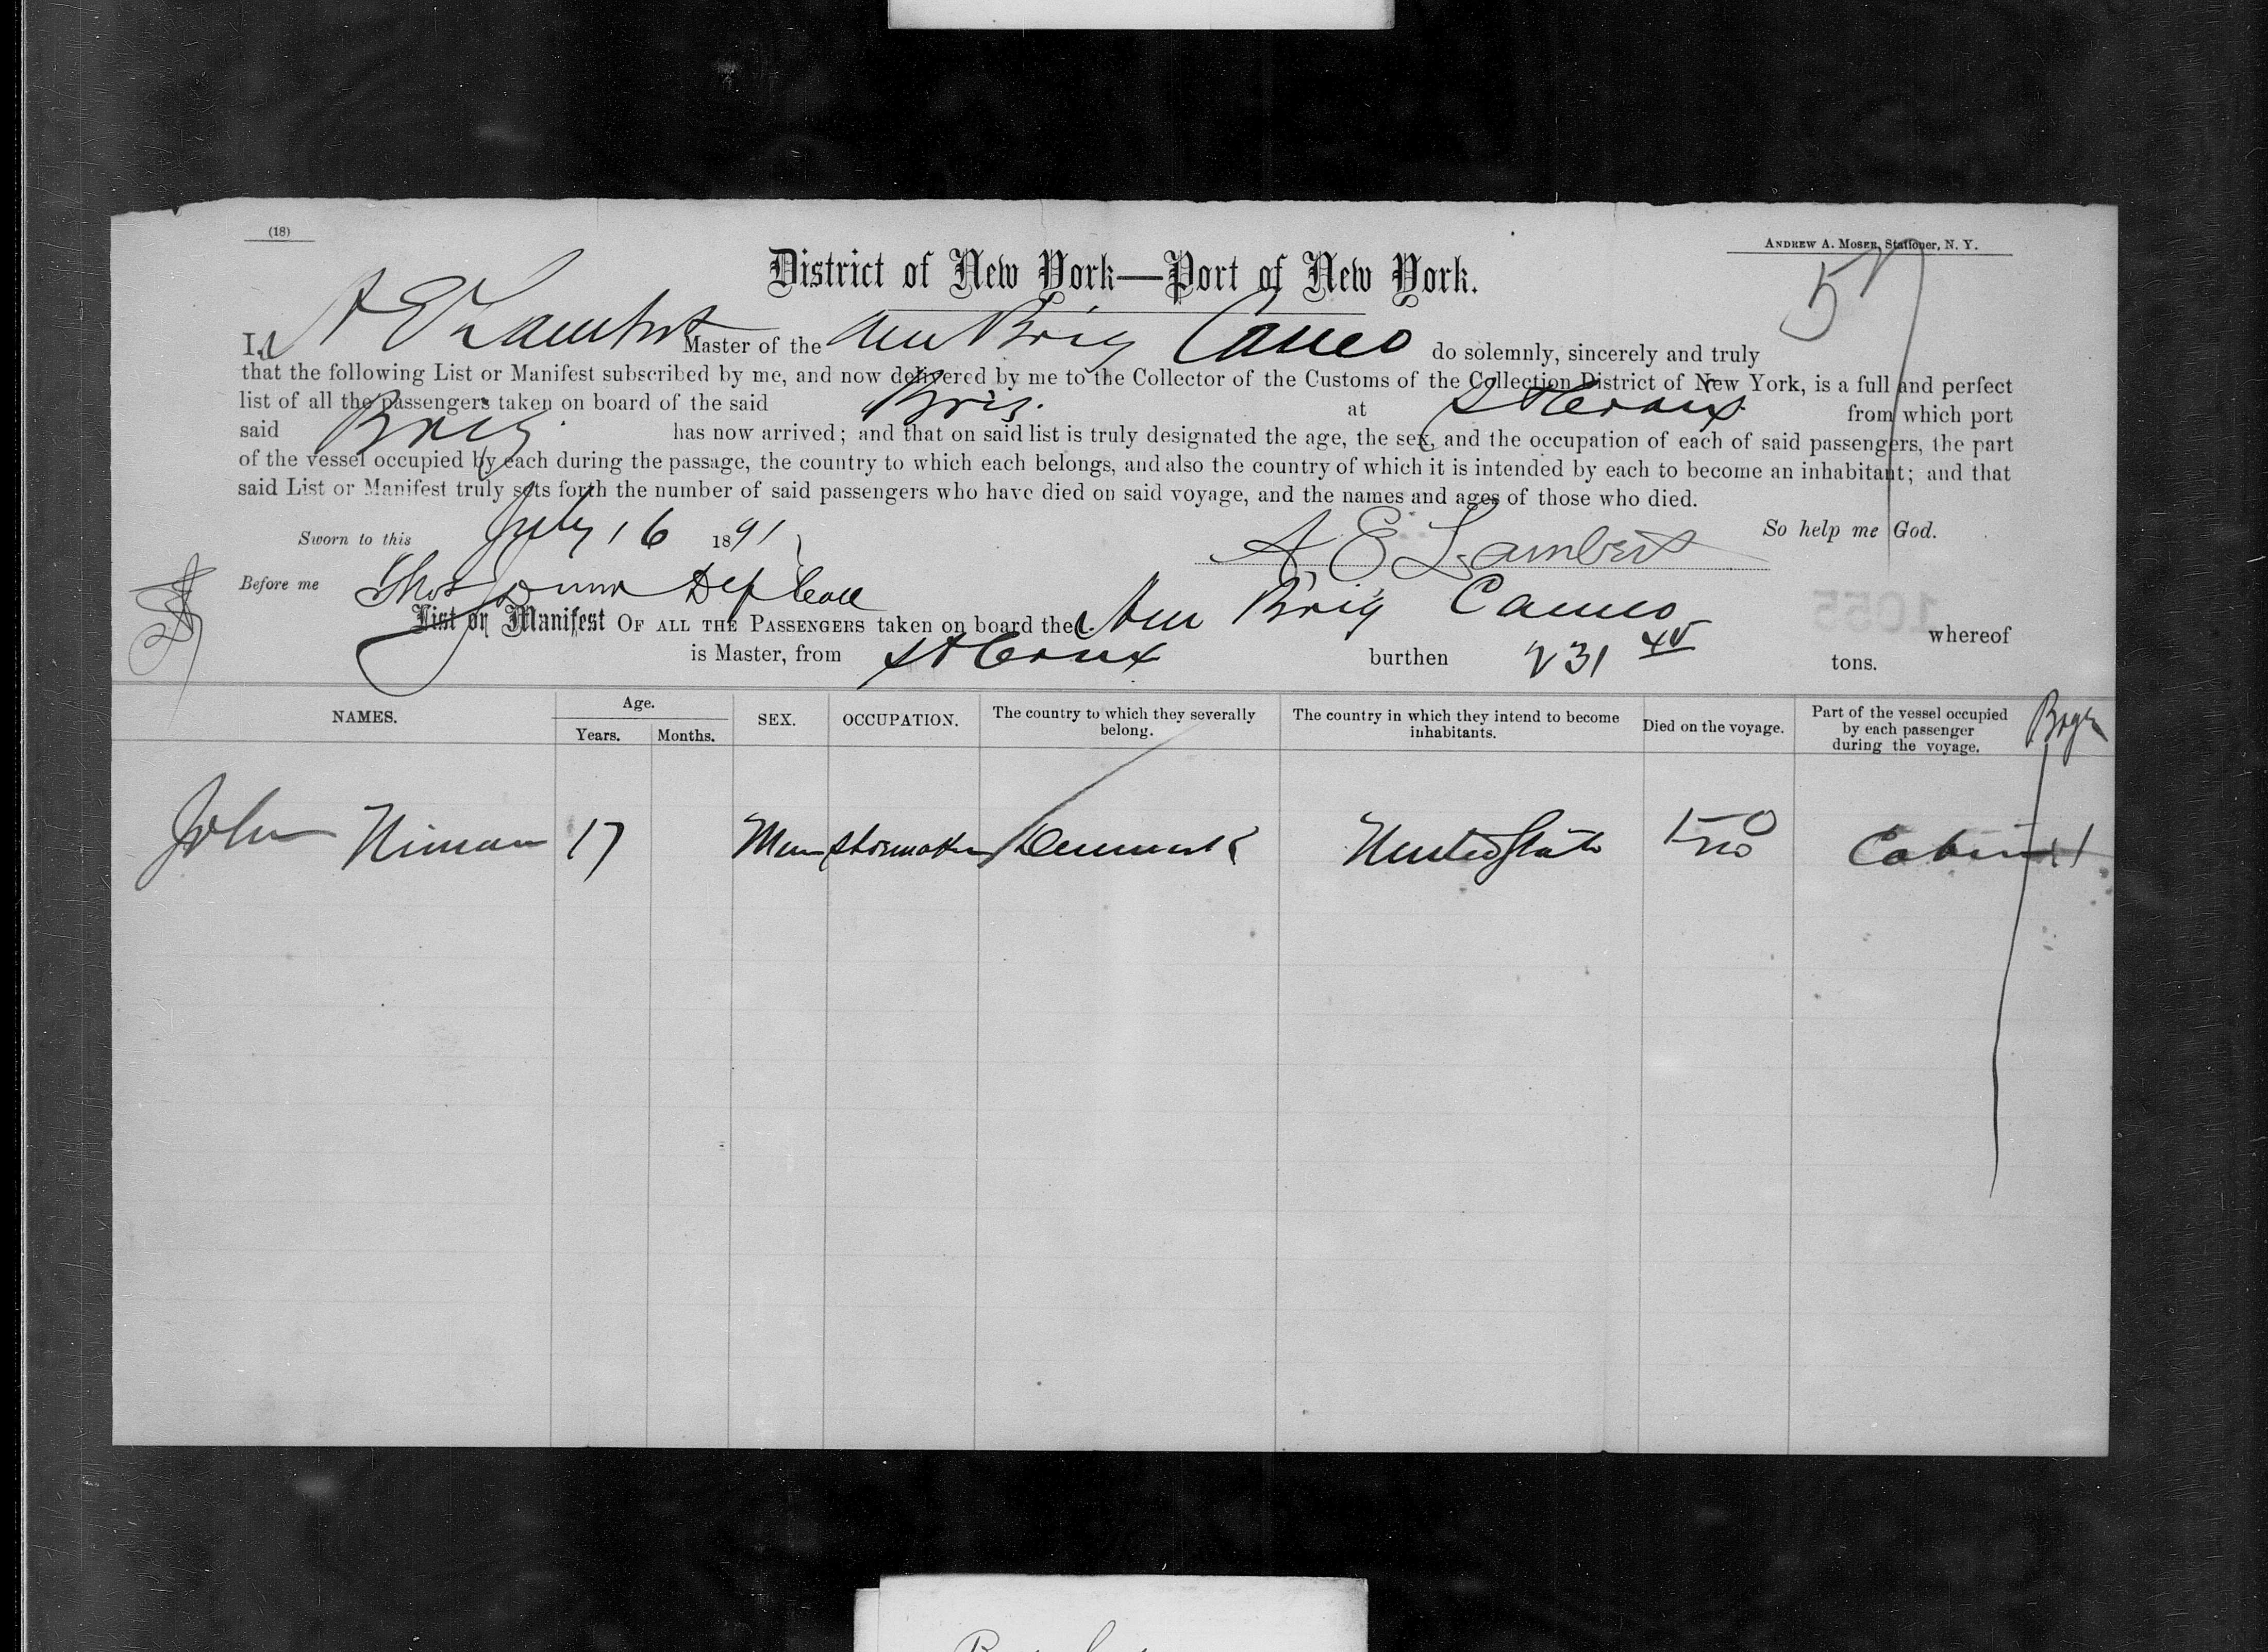 (18)
ANDREW A. MOSER, Stationer, N. Y.
District of New York—Port of New York.
57
I, A E Lambert Master of the Am Brig Cameo do solemnly, sincerely and truly
that the following List or Manifest subscribed by me, and now delivered by me to the Collector of the Customs of the Collection District of New York, is a full and perfect
list of all the passengers taken on board of the said Brig at St Croix from which port
said Brig has now arrived; and that on said list is truly designated the age, the sex, and the occupation of each of said passengers, the part
of the vessel occupied by each during the passage, the country to which each belongs, and also the country of which it is intended by each to become an inhabitant; and that
said List or Manifest truly sets forth the number of said passengers who have died on said voyage, and the names and ages of those who died.
Sworn to this July 16 1891 So help me God.
A E Lambert
Before me Thos Dunn Dep Coll
List or Manifest OF ALL THE PASSENGERS taken on board the Am Brig Cameo whereof
is Master, from St Croix burthen 231 40 tons.
1055
NAMES. Age. Years. Months. SEX. OCCUPATION. The country to which they severally belong. The country in which they intend to become inhabitants. Died on the voyage. Part of the vessel occupied by each passenger during the voyage.
John Niman 17 Man Shoemaker Denmark United State no Cabin 1